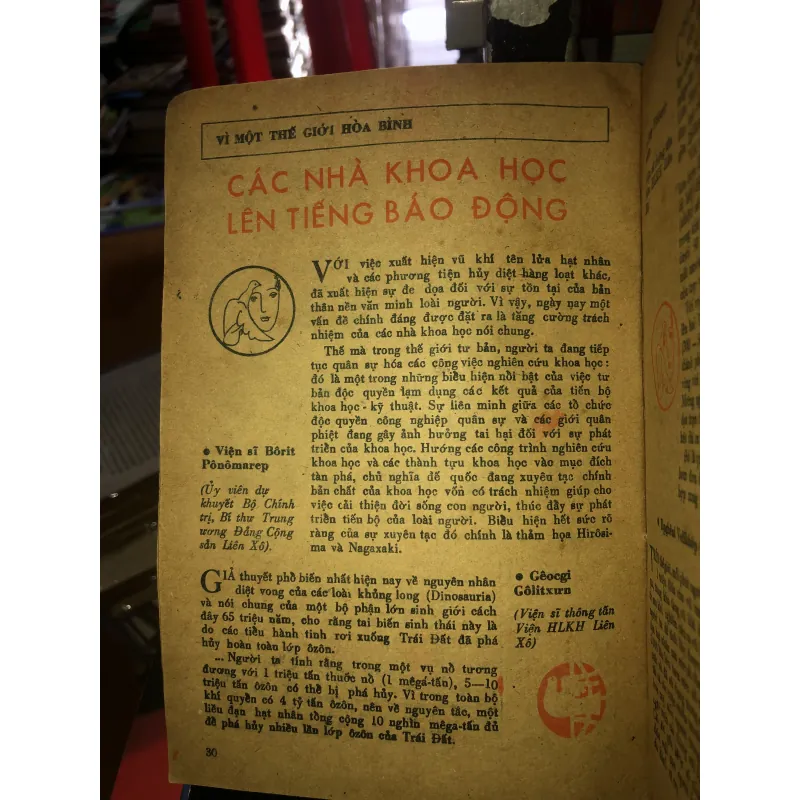 VÌ MỘT THẾ GIỚI HÒA BÌNH
CÁC NHÀ KHOA HỌC
LÊN TIẾNG BÁO ĐỘNG
VỚI việc xuất hiện vũ khí tên lửa hạt nhân
và các phương tiện hủy diệt hàng loạt khác,
đã xuất hiện sự đe dọa đối với sự tồn tại của bản
thân nền văn minh loài người. Vì vậy, ngày nay một
vấn đề chính đáng được đặt ra là tăng cường trách
nhiệm của các nhà khoa học nói chung.
Thế mà trong thế giới tư bản, người ta đang tiếp
tục quân sự hóa các công việc nghiên cứu khoa học :
đó là một trong những biểu hiện nổi bật của việc tư
bản độc quyền lạm dụng các kết quả của tiến bộ
khoa học - kỹ thuật. Sự liên minh giữa các tổ chức
độc quyền công nghiệp quân sự và các giới quân
phiệt đang gây ảnh hưởng tai hại đối với sự phát
triển của khoa học. Hướng các công trình nghiên cứu
khoa học và các thành tựu khoa học vào mục đích
tàn phá, chủ nghĩa đế quốc đang xuyên tạc chính
bản chất của khoa học vốn có trách nhiệm giúp cho
việc cải thiện đời sống con người, thúc đẩy sự phát
triển tiến bộ của loài người. Biểu hiện hết sức rõ
ràng của sự xuyên tạc đó chính là thảm họa Hirôsi-
ma và Nagaxaki.
• Viện sĩ Bôrit
Pônômarep
(Ủy viên dự
khuyết Bộ Chính
trị, Bí thư Trung
ương Đảng Cộng
sản Liên Xô).
GIẢ thuyết phổ biến nhất hiện nay về nguyên nhân
diệt vong của các loài khủng long (Dinosauria)
và nói chung của một bộ phận lớn sinh giới cách
đây 65 triệu năm, cho rằng tai biến sinh thái này là
do các tiểu hành tinh rơi xuống Trái Đất đã phá
hủy hoàn toàn lớp ôzôn.
... Người ta tính rằng trong một vụ nổ tương
đương với 1 triệu tấn thuốc nổ (1 mêgá-tấn), 5—10
triệu tấn ôzôn có thể bị phá hủy. Vì trong toàn bộ
khí quyển có 4 tỷ tấn ôzôn, nên về nguyên tắc, một
liều đạn hạt nhân tổng cộng 10 nghìn mêga-tấn đủ
để phá hủy nhiều lần lớp ôzôn của Trái Đất.
• Gêocgi
Gôlitxưn
(Viện sĩ thông tấn
Viện HLKH Liên
Xô)
30